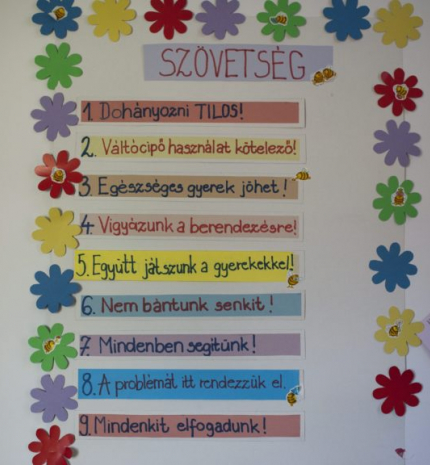 SZÖVETSÉG
1. Dohányozni TILOS!
2. Váltócipő használat kötelező!
3. Egészséges gyerek jöhet!
4. Vigyázunk a berendezésre!
5. Együtt játszunk a gyerekekkel!
6. Nem bántunk senkit!
7. Mindenben segítünk!
8. A problémát itt rendezzük el.
9. Mindenkit elfogadunk!